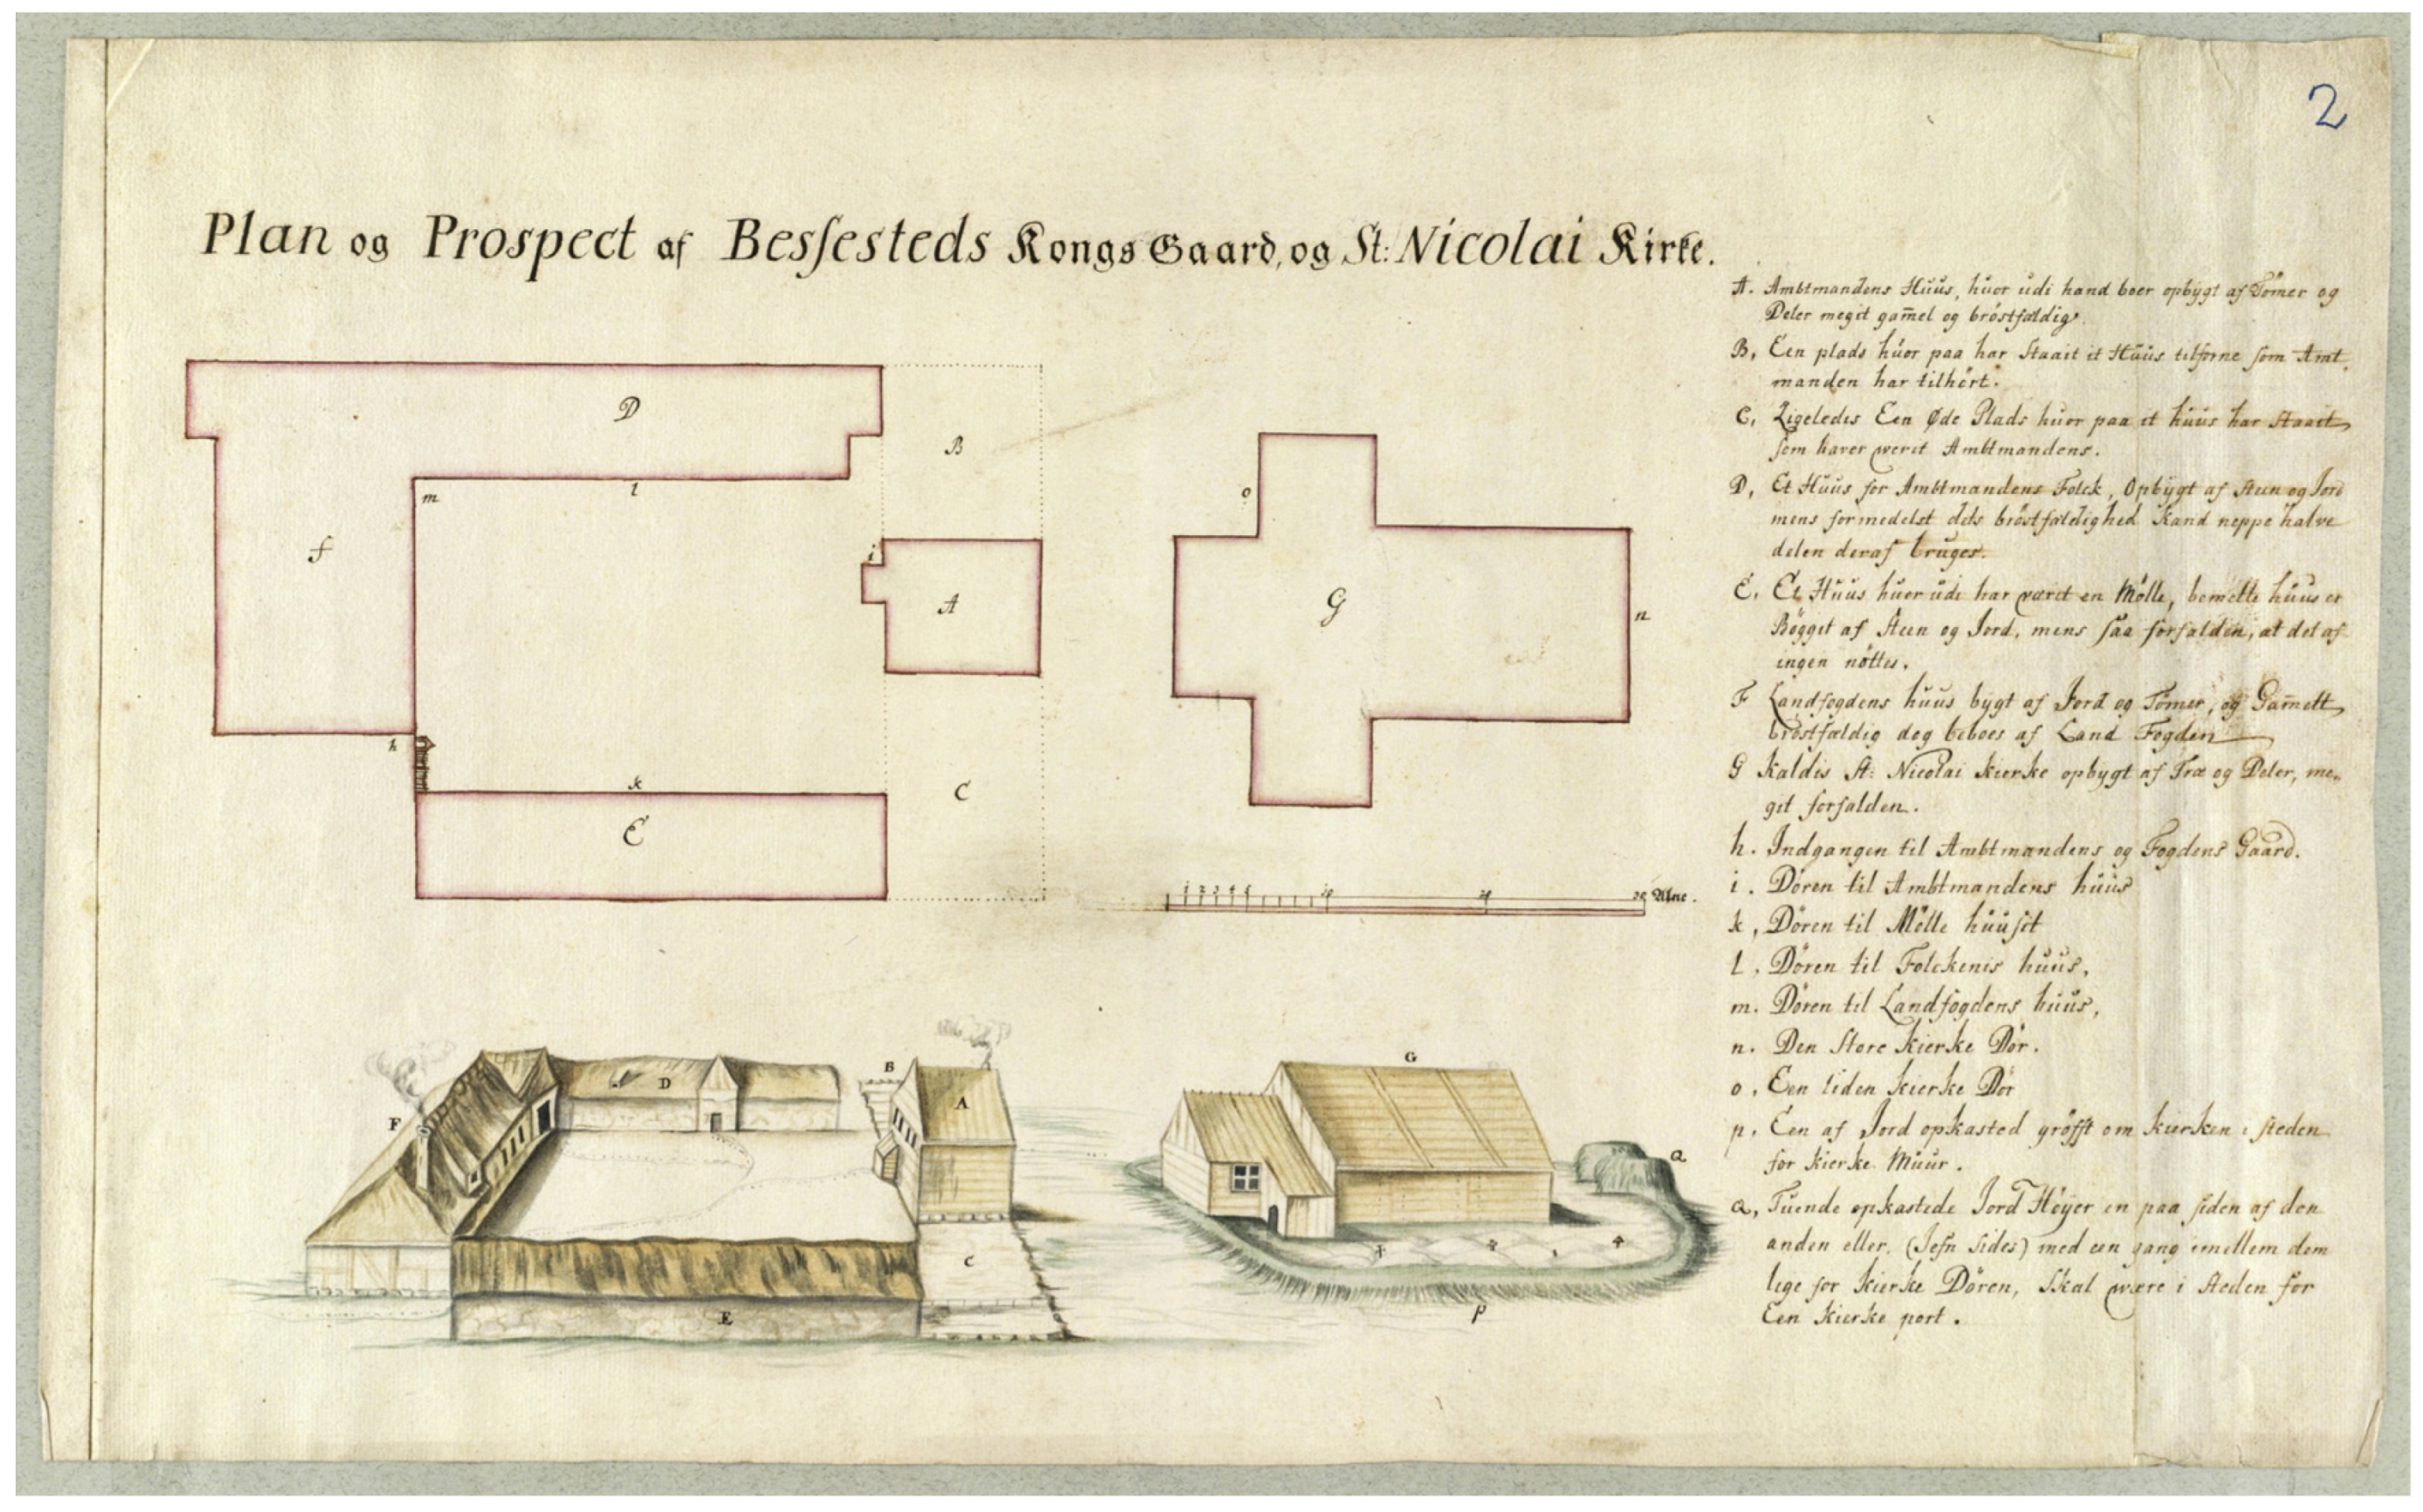 2
Plan og Prospect af Besſesteds Kongs Gaard, og St: Nicolai Kirke.
A. Ambtmandens Huus, huor udi hand boer opbygt af Tömer og
Deler megit gam̄el og bröstfældig.
B, Een plads huor paa har Staait it Huus tilforne ſom Amt
manden har tilhört.
C, Ligeledis Een Øde Plads huor paa it huus har Staait,
ſom haver werit Ambtmandens.
D, Et Huus for Ambtmandens Folck, Opbygt af Steen og Jord
mens formedelst dets bröstfældighed Kand neppe halve
delen deraf bruges.
E. Et Huus huor udi har været en Mölle, bemelte huus er
Bögget af Steen og Jord, mens ſaa forfalden, at det af
ingen nöttes.
F Landfogdens huus bygt af Jord og Tömer, og Gam̄elt,
bröstfældig dog beboes af Land Fogden
G Kaldis St: Nicolai Kierke opbygt af Træ og Deler, me-
git forfalden.
h. Indgangen til Ambtmandens og Fogdens Gaard.
i. Dören til Ambtmandens huus
k, Dören til Mölle huuſit
l. Dören til Folckenis huus,
m. Dören til Landfogdens huus,
n. Den Store Kierke Dör.
o. Een liden Kierke Dör
p. Een af Jord opkasted gröfft om Kierken i ſteden
for Kierke Muur.
Q, Tuende opkastede Jord Höyer en paa ſiden af den
anden eller (Jefn ſides) med een gang imellem dem
lige for Kierke Dören, Skal være i Steden for
Een Kierke port.
D
B
m
l
f
i
A
h
k
E
C
o
G
n
1 2 3 4 5 10 20 30 Alne.
F
D
B
A
C
E
G
Q
p